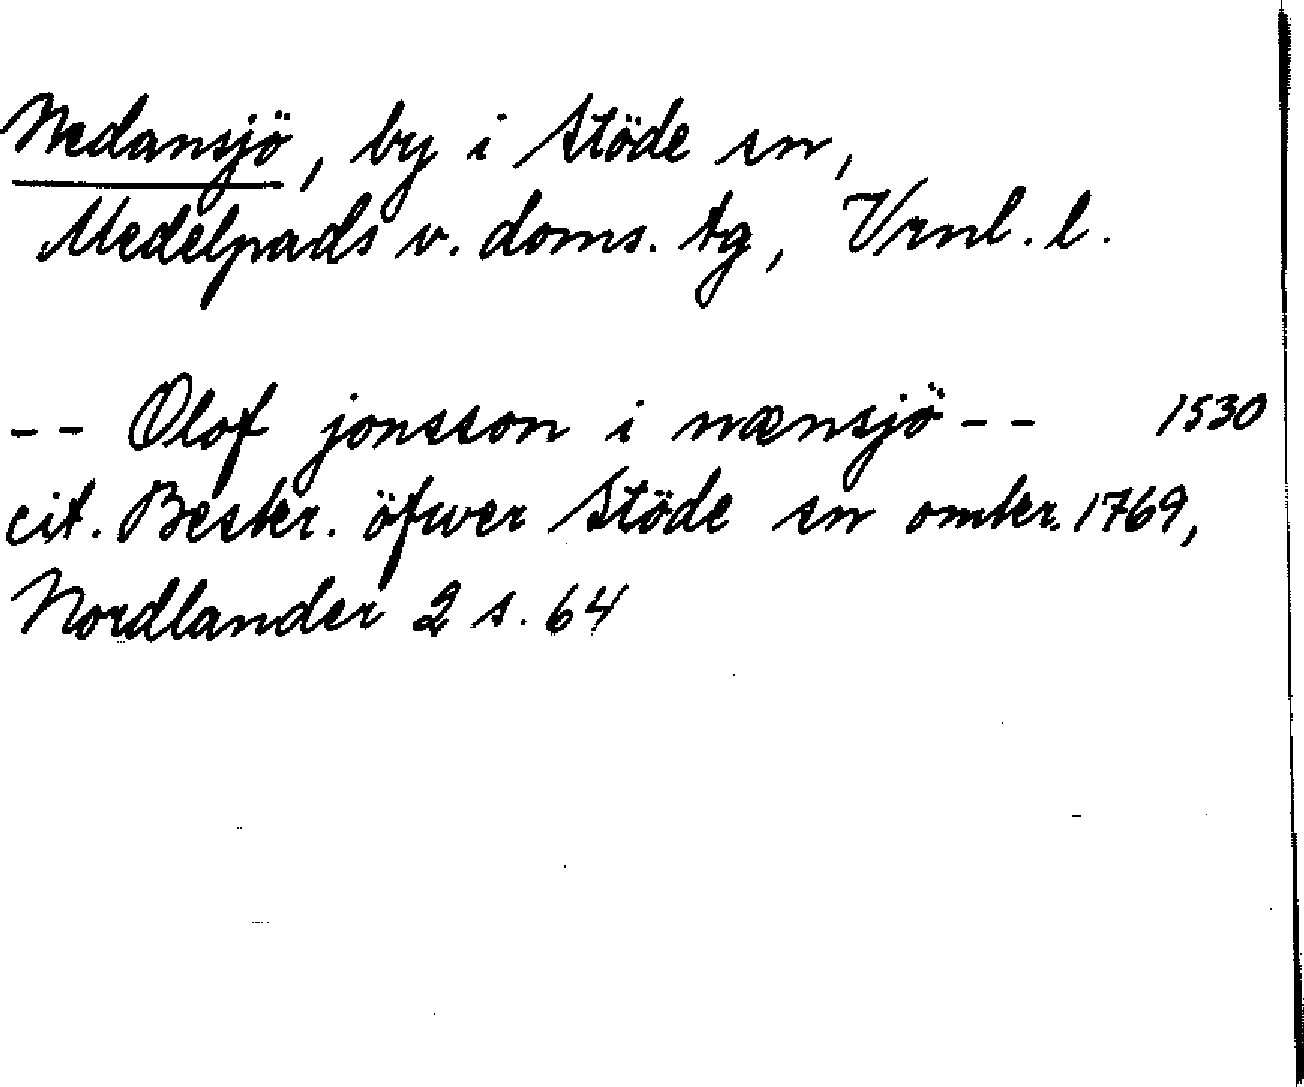 Nedansjö, by i Stöde sn,
Medelpads v. doms. tg, Vrnl. l.
-- Olof jonsson i nænsjö -- 1530
cit. Beskr. öfwer Stöde sn omkr. 1769,
Nordlander 2 s. 64